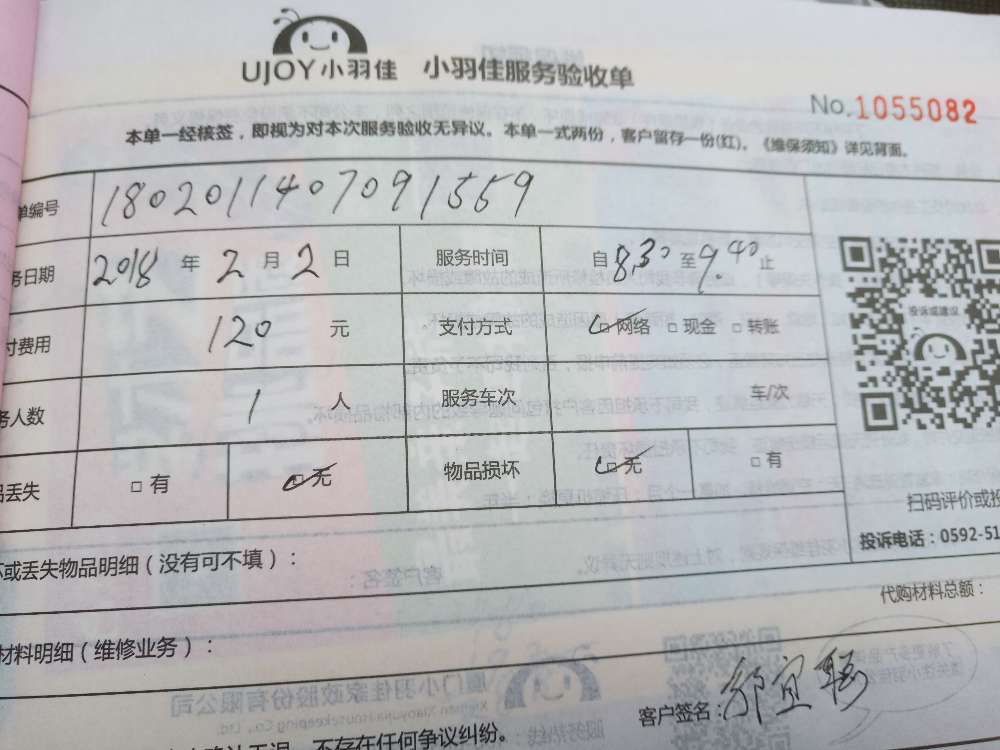 UJOY小羽佳 小羽佳服务验收单
No.1055082
本单一经核签，即视为对本次服务验收无异议。本单一式两份，客户留存一份(红)。《维保须知》详见背面。
单编号 1802011407091559
务日期 2018 年 2 月 2 日 服务时间 自 8:30 至 9:40 止
付费用 120 元 支付方式 □网络 □现金 □转账
务人数 1 人 服务车次 车/次
品丢失 □有 □无 物品损坏 □无 □有
投诉或建议
扫码评价或投
投诉电话：0592-51
坏或丢失物品明细（没有可不填）：
代购材料总额：
材料明细（维修业务）：
客户签名：
不存在任何争议纠纷。